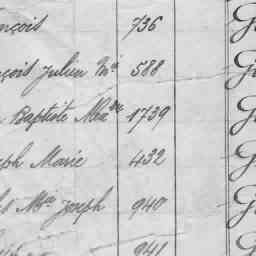 nçois 736
nçois Julien Mie 588
Baptiste Alexdre 1739
eph Marie 432
Mie Joseph 940
941